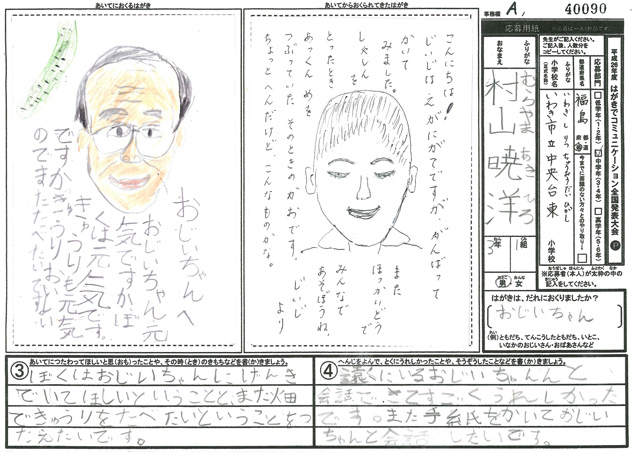 あいてにおくるはがき
おじいちゃんへ
おじいちゃん元
気ですかぼ
くは元気です。
きゅうりも元気
ですかきゅうりおいしい
のでまたたべたいです
あいてからおくられてきたはがき
こんにちは!
じいじは、えがにがてですが、がんばって
かいて
みました。
しゃしんを
とったとき
あきくんが めを
つぶっていた、そのときの かおです。
ちょっと へんだけど、こんなものかな。
また
ほっかいどうで
みんなで
あそぼうね。
じいじ
より
事務欄 A, 40090
応募用紙
平成26年度 はがきでコミュニケーション全国発表大会
先生がご記入ください。
ご記入後、人数分を
コピーしてください。
応募部門
低学年(1・2年)
中学年(3・4年)
高学年(5・6年)
都道府県名
福島
都・道
府・県
今までに面識のない方々とのやり取り
ふりがな
いわきしりつちゅうおうだいひがし
小学校名
(正式名称)
いわき市立中央台東
小学校
ふりがな
むらやま あきひろ
おなまえ
村山暁洋
3年
1組
男・女
※応募者(本人)が太枠の中の
記入をしてください。
はがきは、だれにおくりましたか?
おじいちゃん
(例)ともだち、てんこうしたともだち、いとこ、
いなかのおじいさん・おばあさんなど
③ あいてにつたわってほしいと思(おも)ったことや、その時(とき)のきもちなどを書(か)きましょう。
ぼくはおじいちゃんにげんき
でいてほしいということと、また畑
できゅうりをたべたいということをつ
たえたいです。
④ へんじをよんで、とくにうれしかったことや、そうぞうしたことなどを書(か)きましょう。
遠くにいるおじいちゃんと、
会話できてすごくうれしかった
ですっまた手紙をかいておじい
ちゃんと会話したいです。